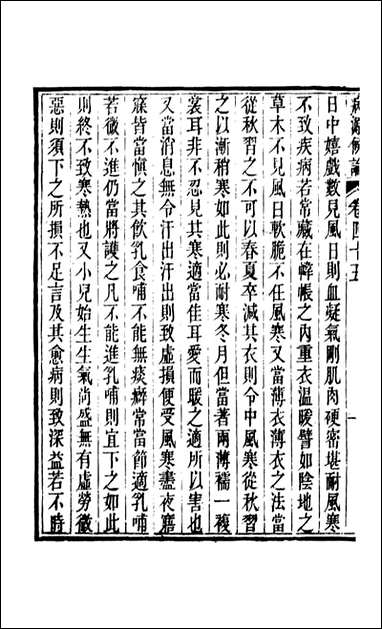 病源候論 卷四十五 一
日中嬉戲數見風日則血凝氣剛肌肉硬密堪耐風寒
不致疾病若常藏在幃帳之內重衣溫暖譬如陰地之
草木不見風日軟脆不任風寒又當薄衣薄衣之法當
從秋習之不可以春夏卒減其衣則令中風寒從秋習
之以漸稍寒如此則必耐寒冬月但當著兩薄襦一複
裳耳非不忍見其寒適當佳耳愛而暖之適所以害也
又當消息無令汗出汗出則致虛損便受風寒晝夜寤
寐皆當慎之其飲乳食哺不能無痰癖常當節適乳哺
若微不進仍當將護之凡不能進乳哺則宜下之如此
則終不致寒熱也又小兒始生生氣尚盛無有虛勞微
惡則須下之所損不足言及其愈病則致深益若不時